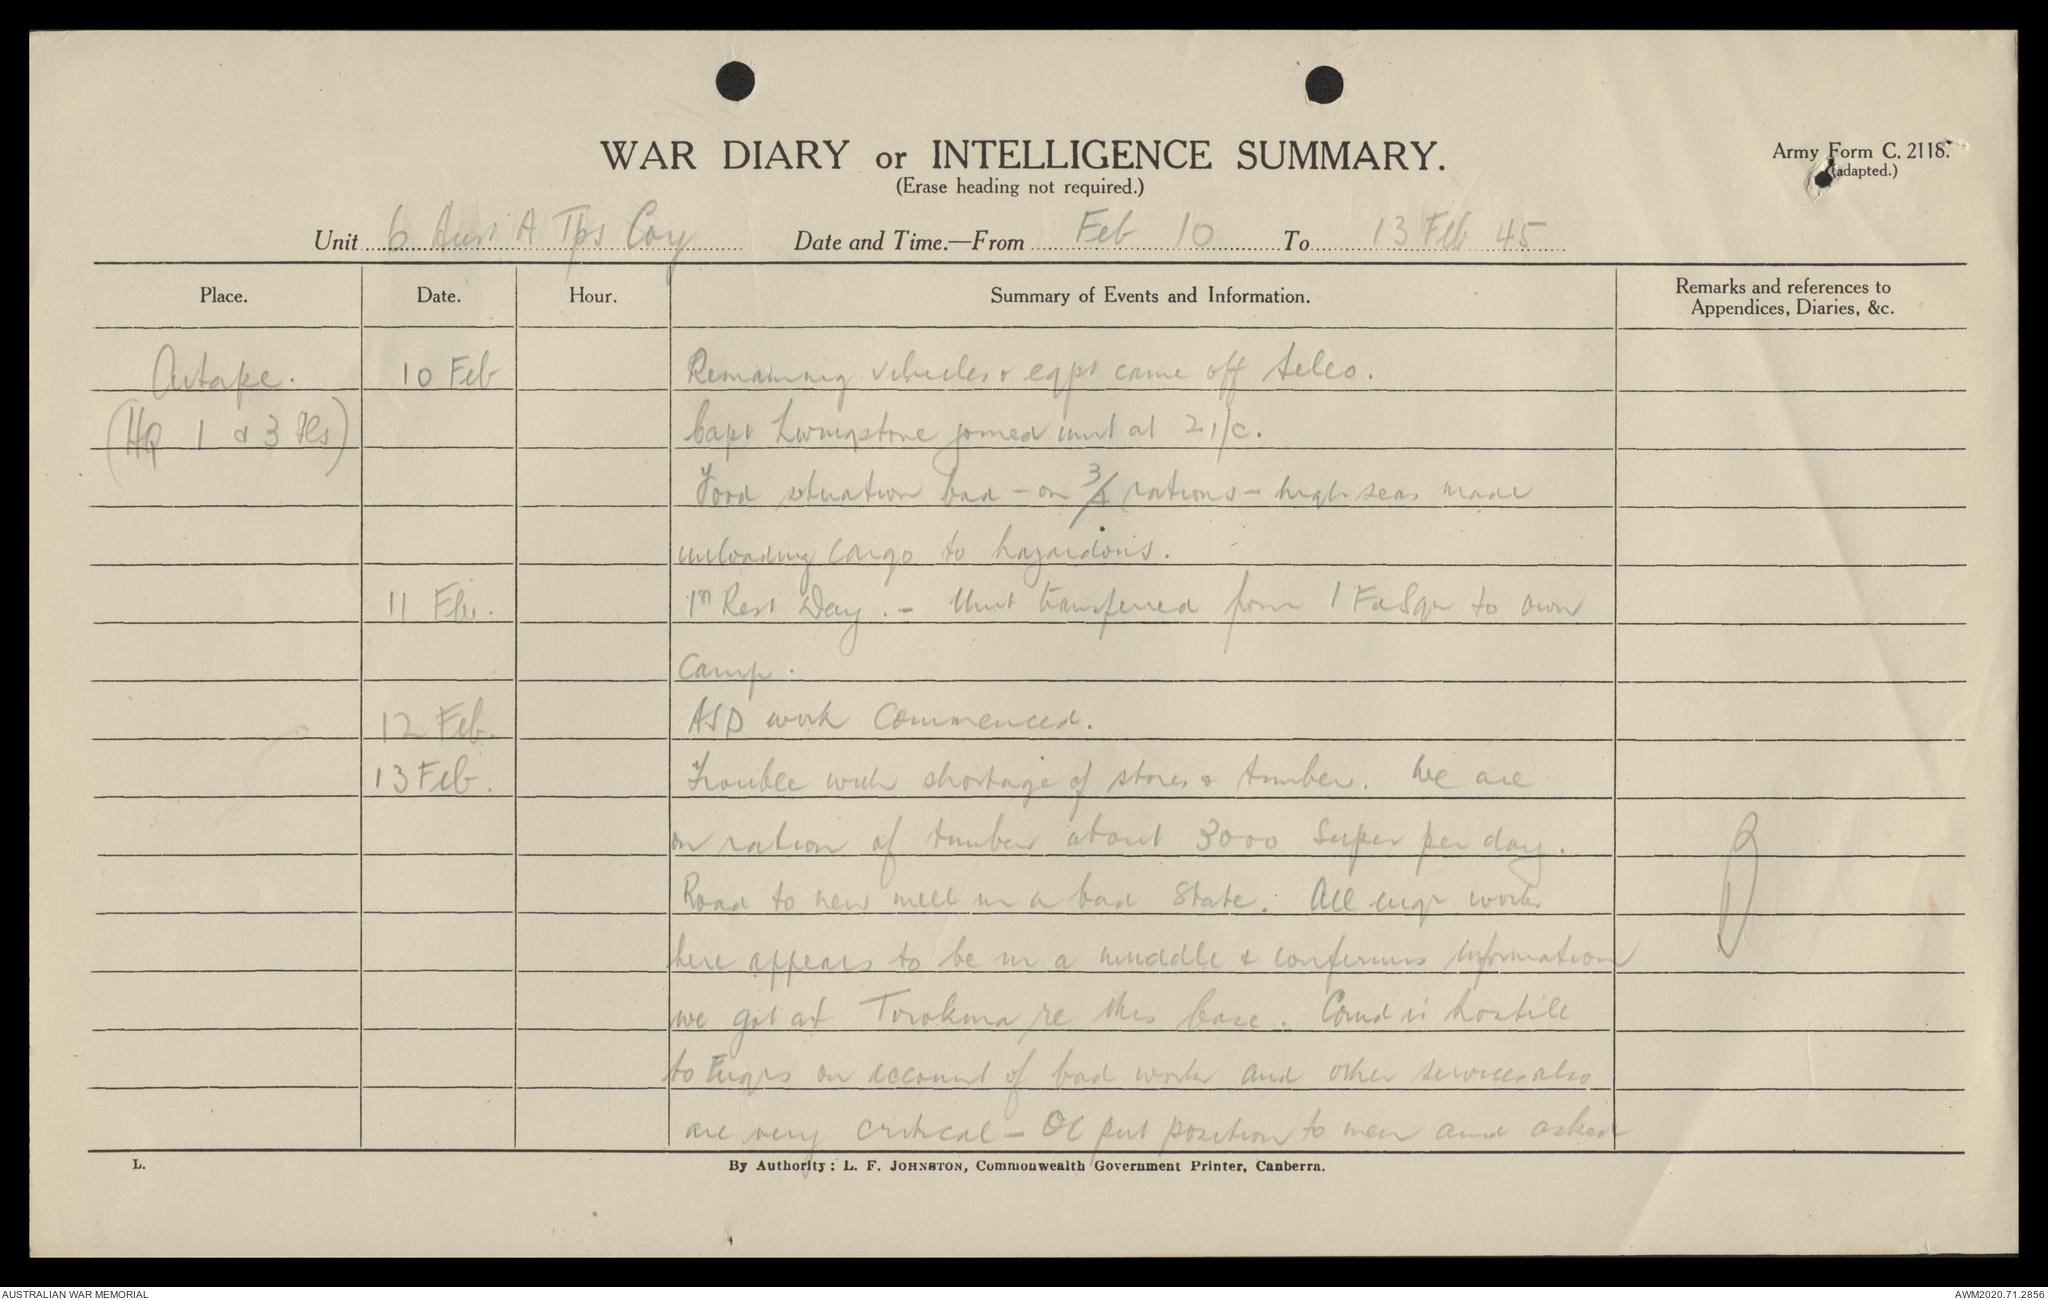 WAR DIARY or INTELLIGENCE SUMMARY.
Army Form C. 2118.
(adapted.)
(Erase heading not required.)
Unit 6 Aust A Tps Coy Date and Time.—From Feb 10 To 13 Feb 45
Place. Date. Hour. Summary of Events and Information. Remarks and references to Appendices, Diaries, &c.
Aitape. 10 Feb Remaining vehicles & eqpt came off Selco.
(HQ 1 & 3 Pls) Capt Livingstone joined unit at 2 i/c.
Food situation bad - on 3/4 rations - high seas made
unloading cargo to hazardous.
11 Feb. 1st Rest Day. - Unit transferred from 1 Fd Sqn to own
camp.
12 Feb. ASD work commenced.
13 Feb. Trouble with shortage of stores & timber. We are
on ration of timber about 3000 super per day.
Road to new mill in a bad state. All engr work
here appears to be in a muddle & confirms information
we got at Torokina re this base. Comd is hostile
to Engrs on account of bad work and other services also
are very critical - OC put position to men and asked
L. By Authority: L. F. JOHNSTON, Commonwealth Government Printer, Canberra.
AUSTRALIAN WAR MEMORIAL AWM2020.71.2856